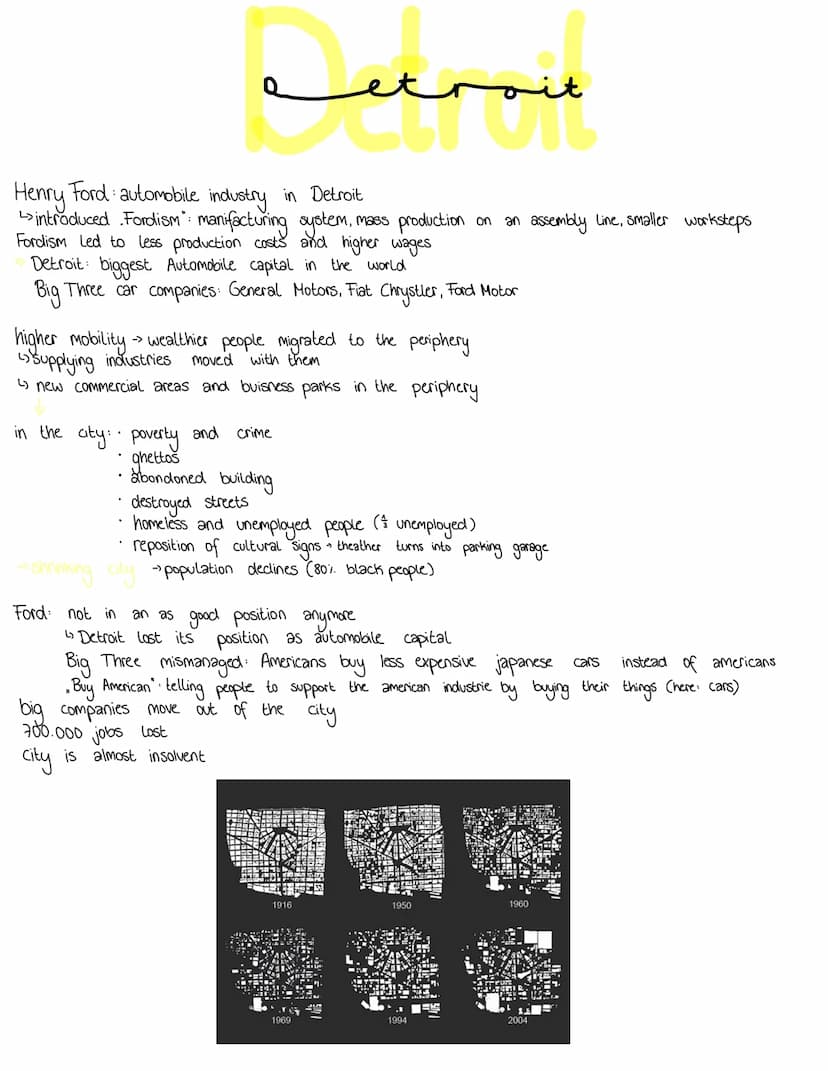 Detroit
Henry Ford: automobile industry in Detroit
↳ introduced „Fordism": manifacturing system, mass production on an assembly line, smaller worksteps
Fordism led to less production costs and higher wages
Detroit: biggest Automobile capital in the world
Big Three car companies: General Motors, Fiat Chrystler, Ford Motor
higher mobility → wealthier people migrated to the periphery
↳ supplying industries moved with them
↳ new commercial areas and buisness parks in the periphery
↓
in the city: · poverty and crime
· ghettos
· abondoned building
· destroyed streets
· homeless and unemployed people ( unemployed)
· reposition of cultural signs → theather turns into parking garage
→ shrinking city → population declines (80% black people)
Ford: not in an as good position anymore
↳ Detroit lost its position as automobile capital
Big Three mismanaged: Americans buy less expensive japanese cars instead of americans
„Buy American": telling people to support the american industrie by buying their things (here: cars)
big companies move out of the city
700.000 jobs lost
City is almost insolvent
1916 1950 1960
1969 1994 2004